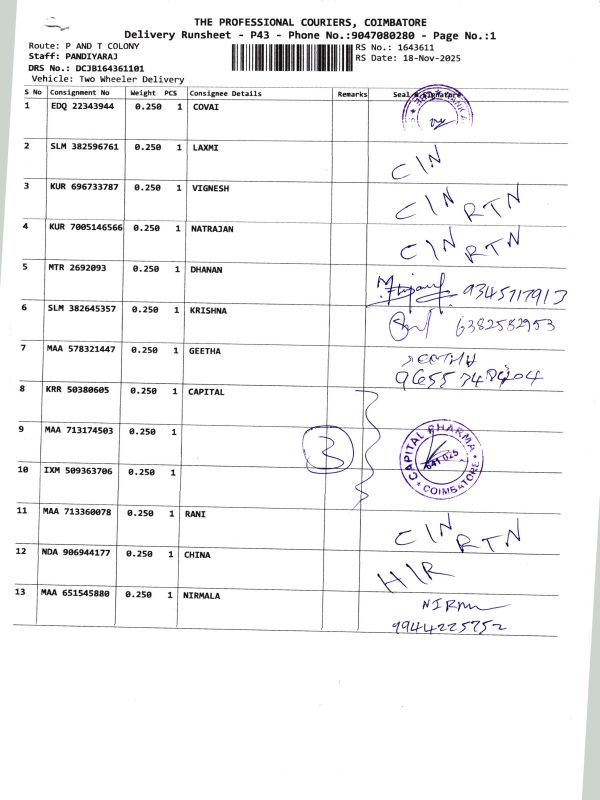 THE PROFESSIONAL COURIERS, COIMBATORE
Delivery Runsheet - P43 - Phone No.:9047080280 - Page No.:1
Route: P AND T COLONY
RS No.: 1643611
Staff: PANDIYARAJ
RS Date: 18-Nov-2025
DRS No.: DCJB164361101
Vehicle: Two Wheeler Delivery
S No Consignment No Weight PCS Consignee Details Remarks Seal & Signature
1 EDQ 22343944 0.250 1 COVAI
2 SLM 382596761 0.250 1 LAXMI CIN
3 KUR 696733787 0.250 1 VIGNESH CIN RTN
4 KUR 7005146566 0.250 1 NATRAJAN CIN RTN
5 MTR 2692093 0.250 1 DHANAN 9345717913
6 SLM 382645357 0.250 1 KRISHNA 6382582953
7 MAA 578321447 0.250 1 GEETHA GEETHA
8 KRR 50380605 0.250 1 CAPITAL
9 MAA 713174503 0.250 1 3 CAPITAL PHARMA
641 025
COIMBATORE
10 IXM 509363706 0.250 1
11 MAA 713360078 0.250 1 RANI CIN RTN
12 NDA 906944177 0.250 1 CHINA HIR
13 MAA 651545880 0.250 1 NIRMALA
9944225752